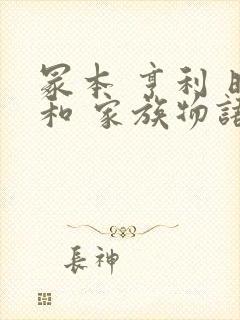 冢本 亨利 昭
和 家族物語
長神